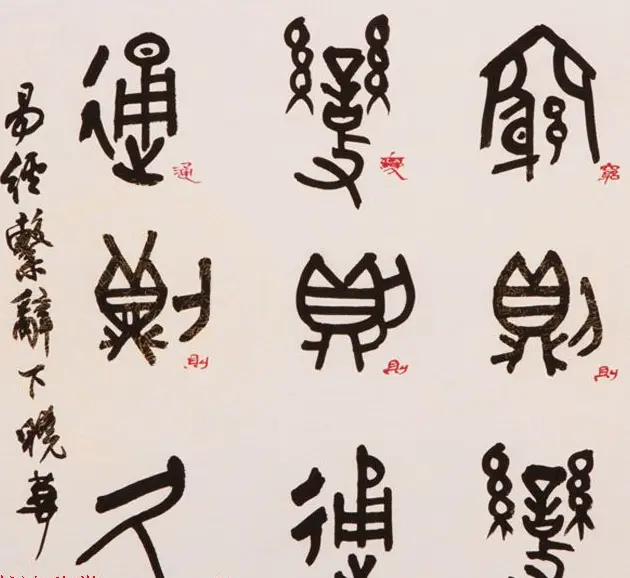 窮則變
窮
則
變則通
變
則
通則久
通
則
易經繫辭下曉華